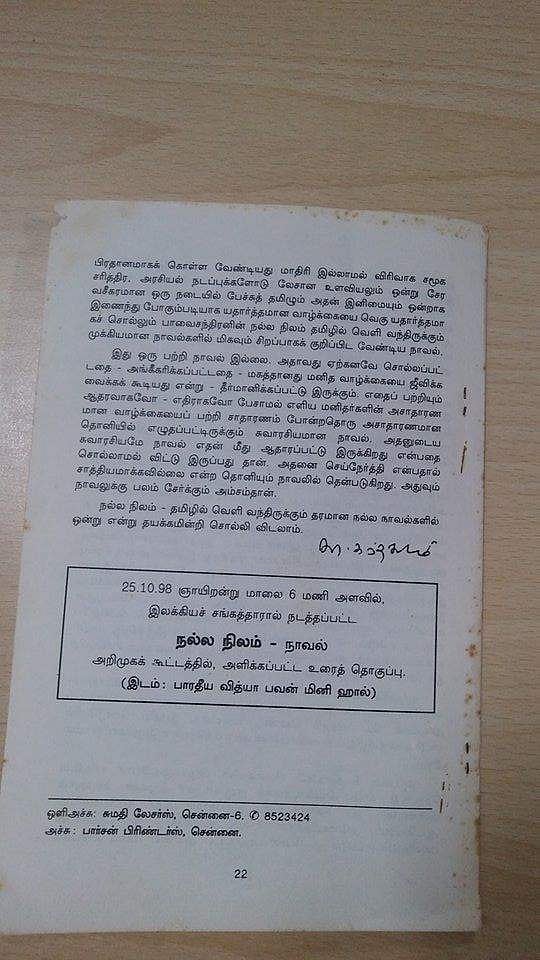 பிரதானமாகக் கொள்ள வேண்டியது மாதிரி இல்லாமல் விரிவாக சமூக
சரித்திர, அரசியல் நடப்புக்களோடு லேசான உளவியலும் ஒன்று சேர
வசீகரமான ஒரு நடையில் பேச்சுத் தமிழும் அதன் இனிமையும் ஒன்றாக
இணைந்து போகும்படியாக யதார்த்தமான வாழ்க்கையை வெகு யதார்த்தமா
கச் சொல்லும் பாவைசந்திரனின் நல்ல நிலம் தமிழில் வெளி வந்திருக்கும்
முக்கியமான நாவல்களில் மிகவும் சிறப்பாகக் குறிப்பிட வேண்டிய நாவல்.
இது ஒரு பற்றி நாவல் இல்லை. அதாவது ஏற்கனவே சொல்லப்பட்
டதை - அங்கீகரிக்கப்பட்டதை - மகத்தானது மனித வாழ்க்கையை ஜீவிக்க
வைக்கக் கூடியது என்று - தீர்மானிக்கப்பட்டு இருக்கும். எதைப் பற்றியும்
ஆதரவாகவோ - எதிராகவோ பேசாமல் எளிய மனிதர்களின் அசாதாரண
மான வாழ்க்கையைப் பற்றி சாதாரணம் போன்றதொரு அசாதாரணமான
தொனியில் எழுதப்பட்டிருக்கும் சுவாரசியமான நாவல். அதனுடைய
சுவாரசியமே நாவல் எதன் மீது ஆதாரப்பட்டு இருக்கிறது என்பதை
சொல்லாமல் விட்டு இருப்பது தான். அதனை செய்நேர்த்தி என்பதால்
சாத்தியமாக்கவில்லை என்ற தொனியும் நாவலில் தென்படுகிறது. அதுவும்
நாவலுக்கு பலம் சேர்க்கும் அம்சம்தான்.
நல்ல நிலம் - தமிழில் வெளி வந்திருக்கும் தரமான நல்ல நாவல்களில்
ஒன்று என்று தயக்கமின்றி சொல்லி விடலாம்.
சா. கந்தசாமி
25.10.98 ஞாயிறன்று மாலை 6 மணி அளவில்,
இலக்கியச் சங்கத்தாரால் நடத்தப்பட்ட
நல்ல நிலம் - நாவல்
அறிமுகக் கூட்டத்தில், அளிக்கப்பட்ட உரைத் தொகுப்பு.
(இடம் : பாரதீய வித்யா பவன் மினி ஹால்)
ஒளிஅச்சு : சுமதி லேசர்ஸ், சென்னை-6. ✆ 8523424
அச்சு : பார்சன் பிரிண்டர்ஸ், சென்னை.
22